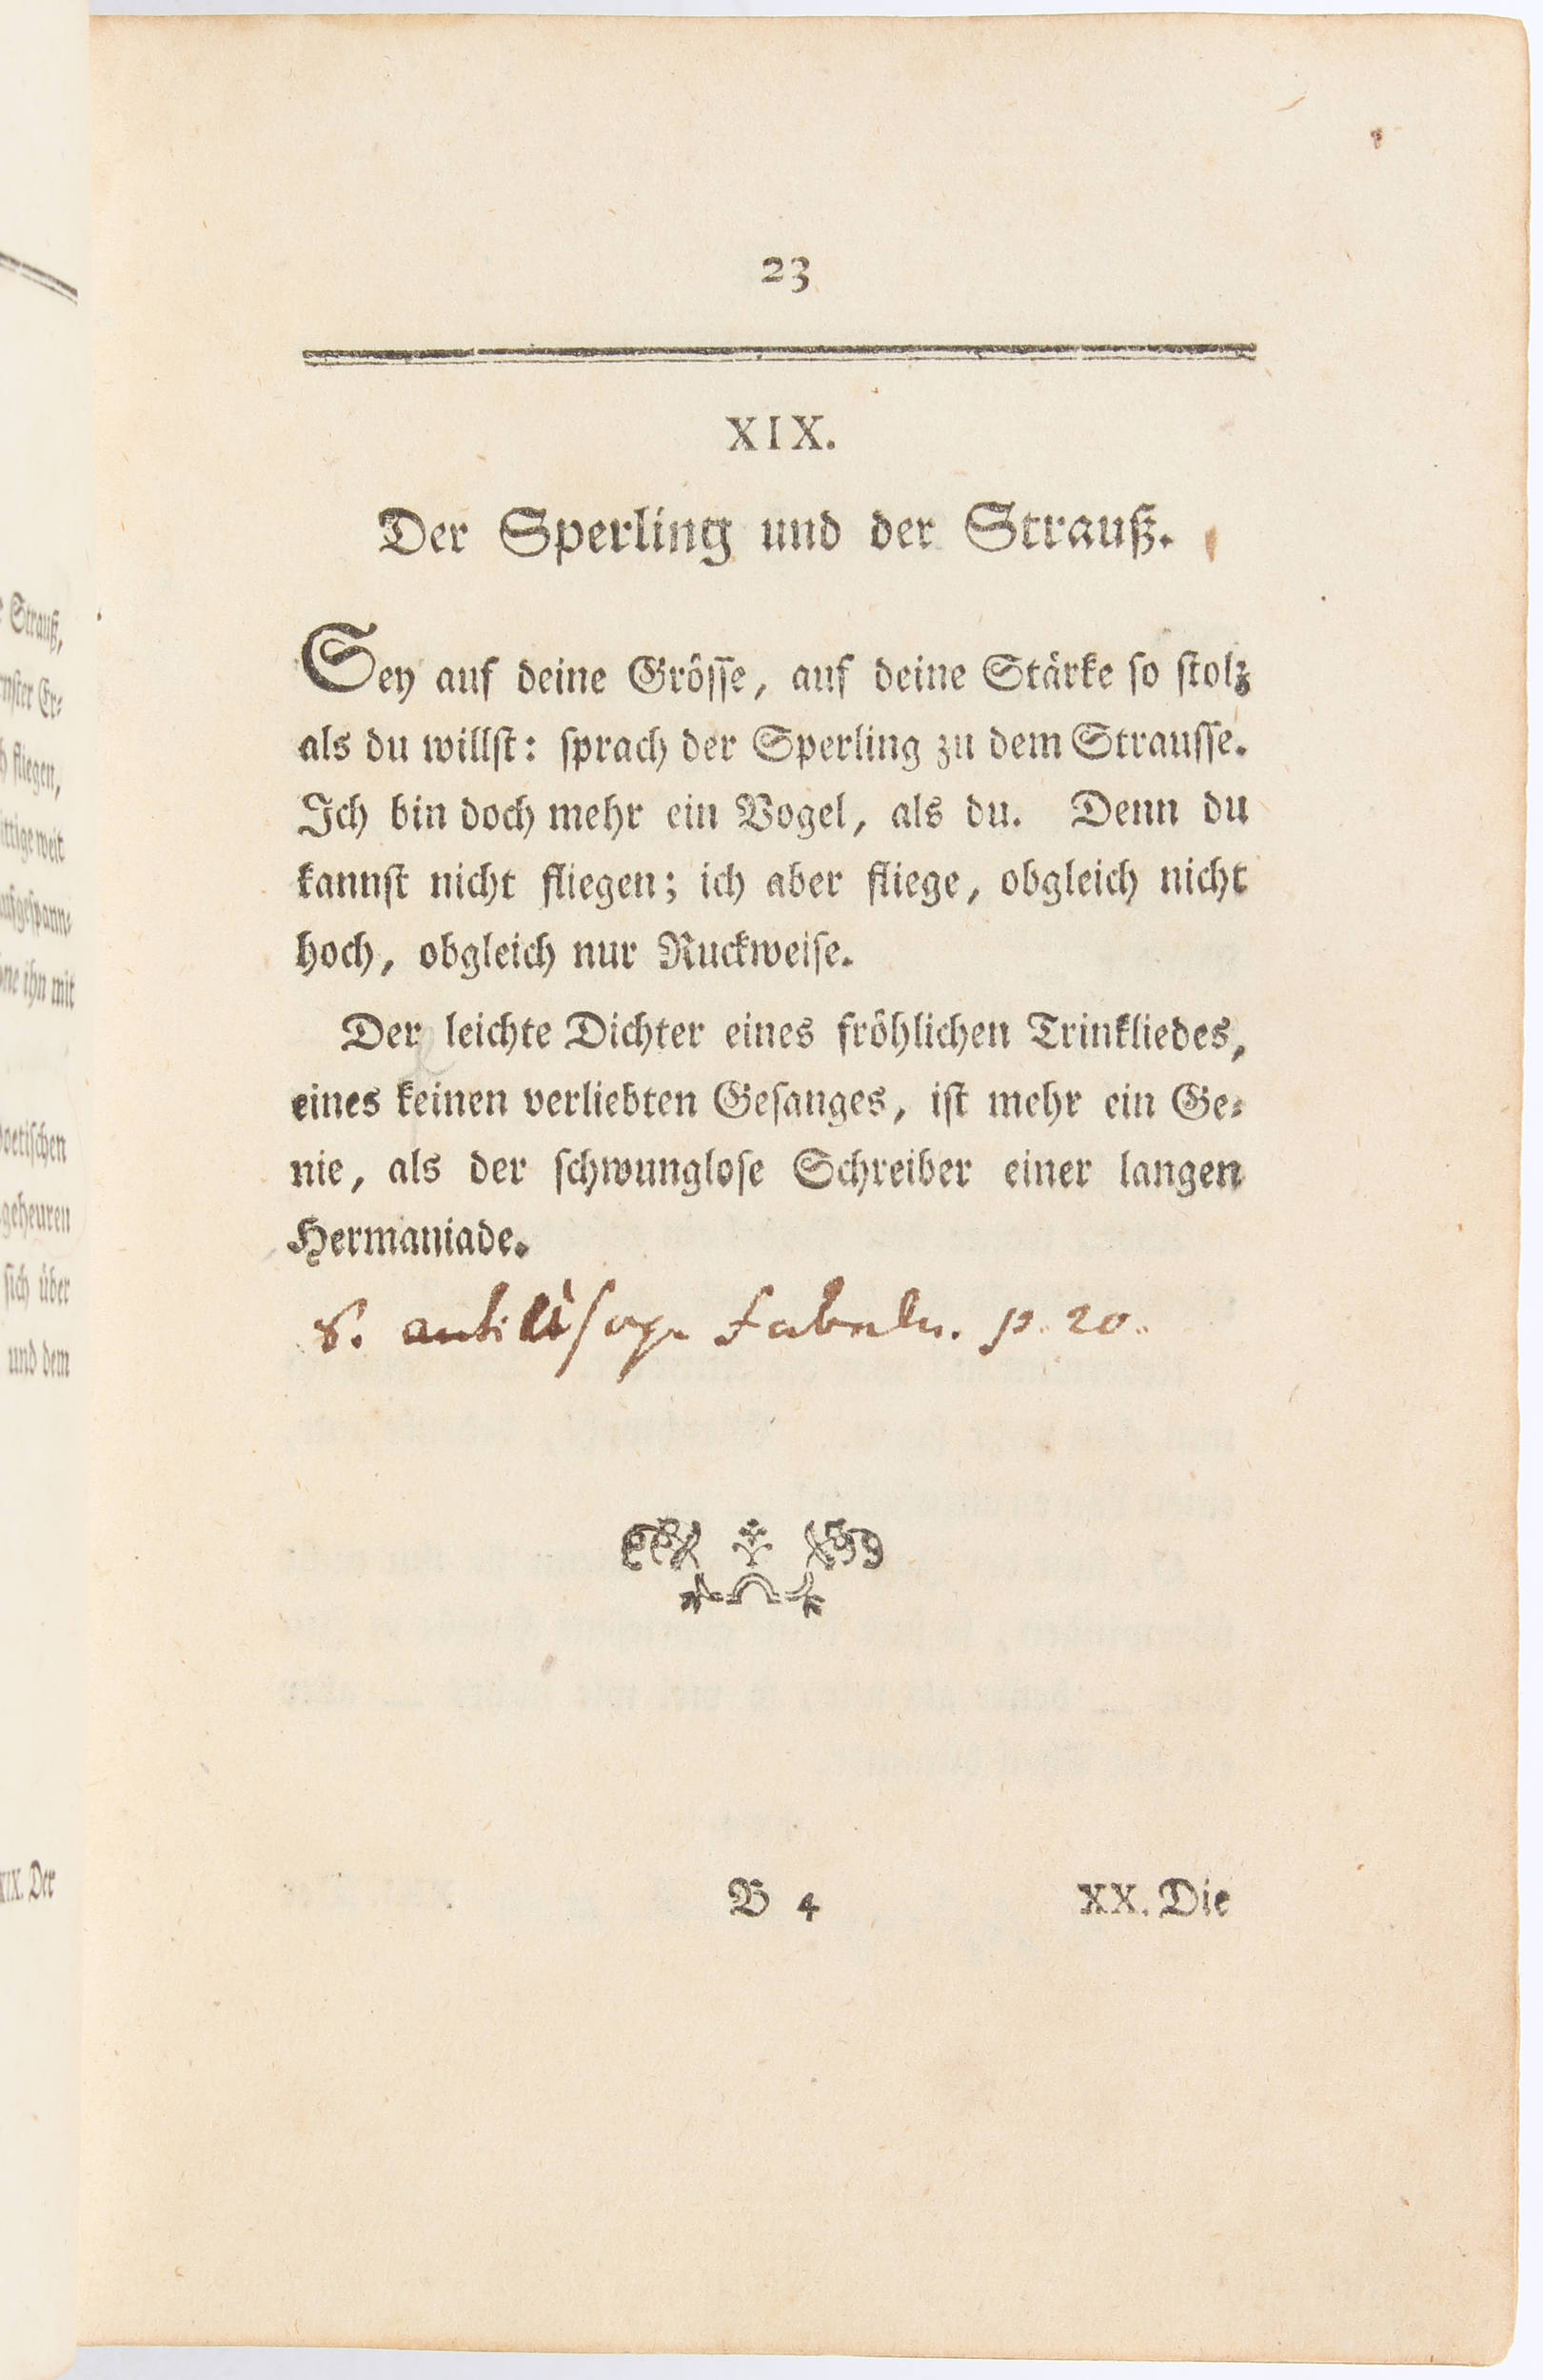 23
XIX.
Der Sperling und der Strauß.
Sey auf deine Grösse, auf deine Stärke so stolz
als du willst: sprach der Sperling zu dem Strausse.
Ich bin doch mehr ein Vogel, als du. Denn du
kannst nicht fliegen; ich aber fliege, obgleich nicht
hoch, obgleich nur Ruckweise.
Der leichte Dichter eines fröhlichen Trinkliedes,
eines keinen verliebten Gesanges, ist mehr ein Ge-
nie, als der schwunglose Schreiber einer langen
Hermaniade.
S. p. 20.
B 4
XX. Die
Strauß,
fliegen,
ihn mit
sich über
und dem
XIX. Der